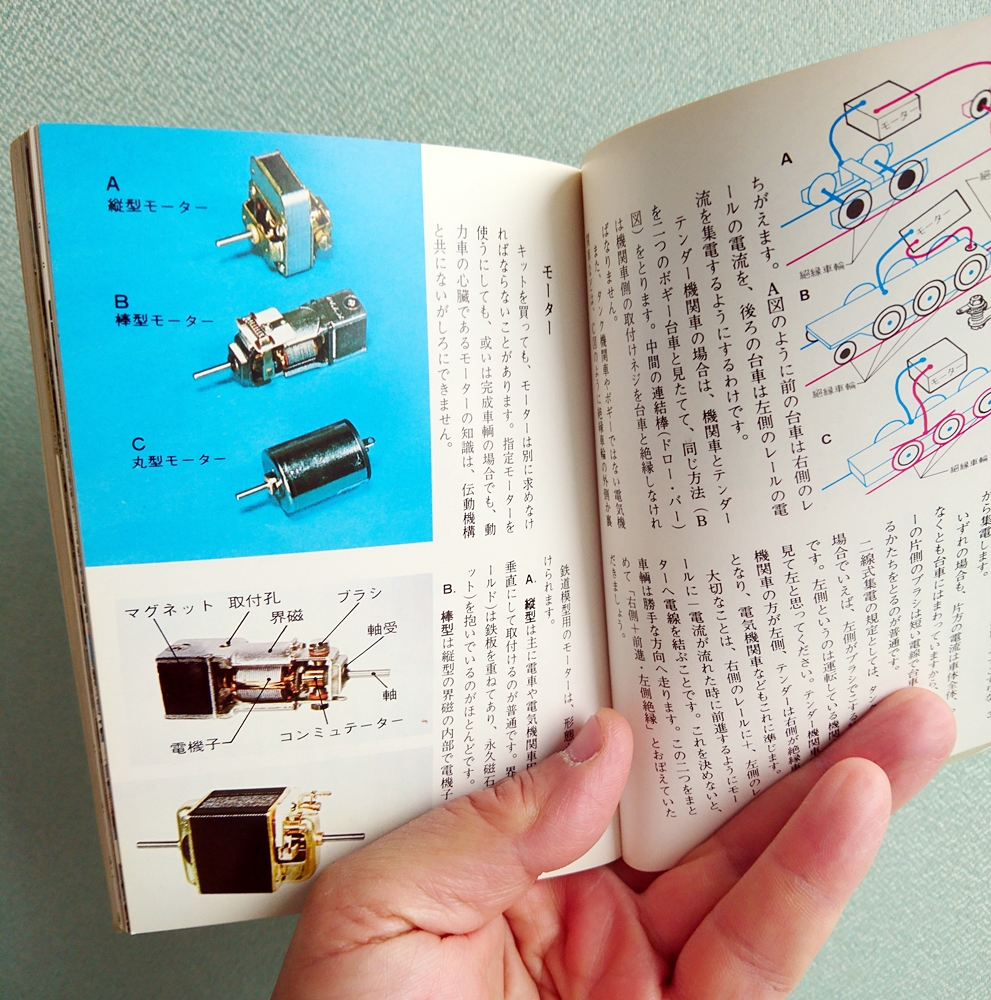 A
モーター
絶縁車輪
B
モーター
絶縁車輪
C
モーター
絶縁車輪
ちがえます。A図のように前の台車は右側のレ
ールの電流を、後ろの台車は左側のレールの電
流を集電するようにするわけです。
テンダー機関車の場合は、機関車とテンダー
を二つのボギー台車と見たてて、同じ方法（B
図）をとります。中間の連結棒（ドロー・バー）
は機関車側の取付けネジを台車と絶縁しなけれ
ばなりません。
また、タンク機関車やボギーではない電気機
のように絶縁車輪の外側か裏
から集電します。
いずれの場合も、片方の電流は車体全体、
なくとも台車にはまわっていますから、
ーの片側のブラシは短い電線で台車
るかたちをとるのが普通です。
二線式集電の規定としては、タン
場合でいえば、左側がブラシでこする
です。左側というのは運転している機関
見て左と思ってください。テンダー機関車
機関車の方が左側、テンダーは右側が絶縁車
となり、電気機関車などもこれに準じます。
大切なことは、右側のレールに＋、左側のレ
ールに－電流が流れた時に前進するようにモー
ターへ電線を結ぶことです。これを決めないと、
車輌は勝手な方向へ走ります。この二つをまと
めて「右側＋前進、左側絶縁」とおぼえていた
だきましょう。
モーター
キットを買っても、モーターは別に求めなけ
ればならないことがあります。指定モーターを
使うにしても、或いは完成車輌の場合でも、動
力車の心臓であるモーターの知識は、伝動機構
と共にないがしろにできません。
鉄道模型用のモーターは、形態
けられます。
A. 縦型は主に電車や電気機関車用
垂直にして取付けるのが普通です。界
ールド）は鉄板を重ねてあり、永久磁石
ット）を抱いでいるのがほとんどです。
B. 棒型は縦型の界磁の内部で電機子
A
縦型モーター
B
棒型モーター
C
丸型モーター
マグネット
取付孔
界磁
ブラシ
軸受
軸
コンミュテーター
電機子